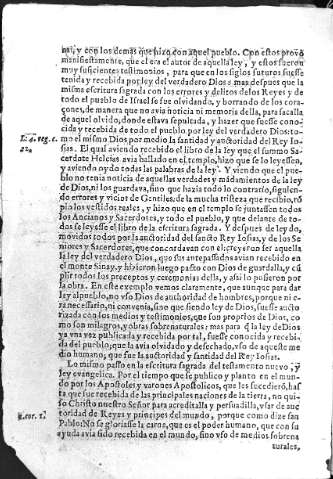 nal, y con los demas que hizo con aquel pueblo. Con estos prouò
manifiestamente, que el era el autor de aquella ley, y estos fueron
muy suficientes testimonios, para que en los siglos futuros fuesse
tenida y recebida por ley del verdadero Dios: mas despues que la
misma escritura sagrada con los errores y delitos de los Reyes y de
todo el pueblo de Israel se fue oluidando, y borrando de los cora-
çones, de manera que no auia noticia ni memoria della, para sacalla
de aquel oluido, donde estaua sepultada, y hazer que fuesse cono-
cida y recebida de todo el pueblo por ley del verdadero Dios: to-
L. 4. reg. c. mo el mismo Dios por medio la santidad y auctoridad del Rey Io-
22. sias. El qual auiendo recebido el libro de la ley que el summo Sa-
cerdote Helcias auia hallado en el templo, hizo que se lo leyessen,
y auiendo oydo todas las palabras de la ley. Y viendo que el pue-
blo no tenia noticia de aquellas verdades y mãdamientos de la ley
de Dios, ni los guardaua, sino que hazia todo lo contrario, siguien-
do errores y vicios de Gentiles: de la mucha tristeza que recibio, rõ
pio los vestidos reales, y hizo que en el templo se juntassen todos
los Ancianos y Sacerdotes, y todo el pueblo, y que delante de to-
dos se leyesse el libro de la escritura sagrada. Y despues de leydo,
mouidos todos por la auctoridad del sancto Rey Iosias, y de los Se
ñores y Sacerdotes, que concordauan con el: creyeron ser aquella
la ley del verdadero Dios, que sus antepassados auian recebido en
el monte Sinay, y hizieron luego pacto con Dios de guardalla, y cũ
plir todos los preceptos y ceremonias della, y assi lo pusieron por
la obra. En este exemplo vemos claramente, que aunque para dar
ley al pueblo, no vso Dios de authoridad de hombres, porque ni e-
ra necessario, ni conuenia, sino que siendo ley de Dios, fuesse aucto
rizada con los medios y testimonios, que son proprios de Dios, co
mo son milagros, y obras sobrenaturales: mas para q̃ la ley de Dios
ya vna vez publicada y recebida por tal, fuesse conocida y recebi-
da del pueblo, que la auia oluidado y desechado, vso de aqueste me
dio humano, que fue la auctoridad y santidad del Rey Iosias.
Lo mismo passo en la escritura sagrada del testamento nueuo, y
ley euangelica. Por el tiempo que se publico y planto en el mun-
do por los Apostoles y varones Apostolicos, que les succediero, has
ta que fue recebida de las principales naciones de la tierra, no qui-
so Christo nuestro Señor para acreditalla y persuadilla, vsar de auc
1. cor. 1. toridad de Reyes y principes del mundo, porque como dize san
Pablo: No se gloriasse la carne, que es el poder humano, que con su
ayuda auia sido recebida en el mundo, sino vso de medios sobrena
turales,